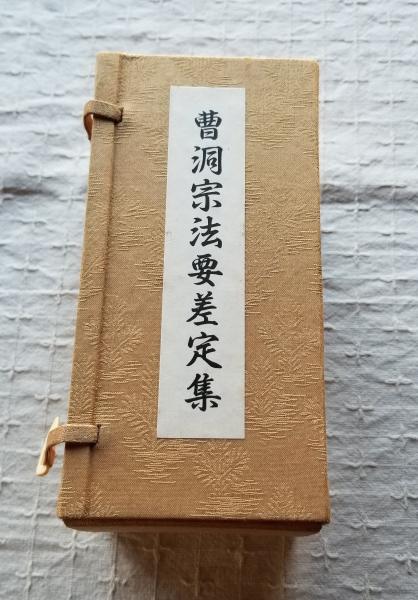 曹洞宗法要差定集